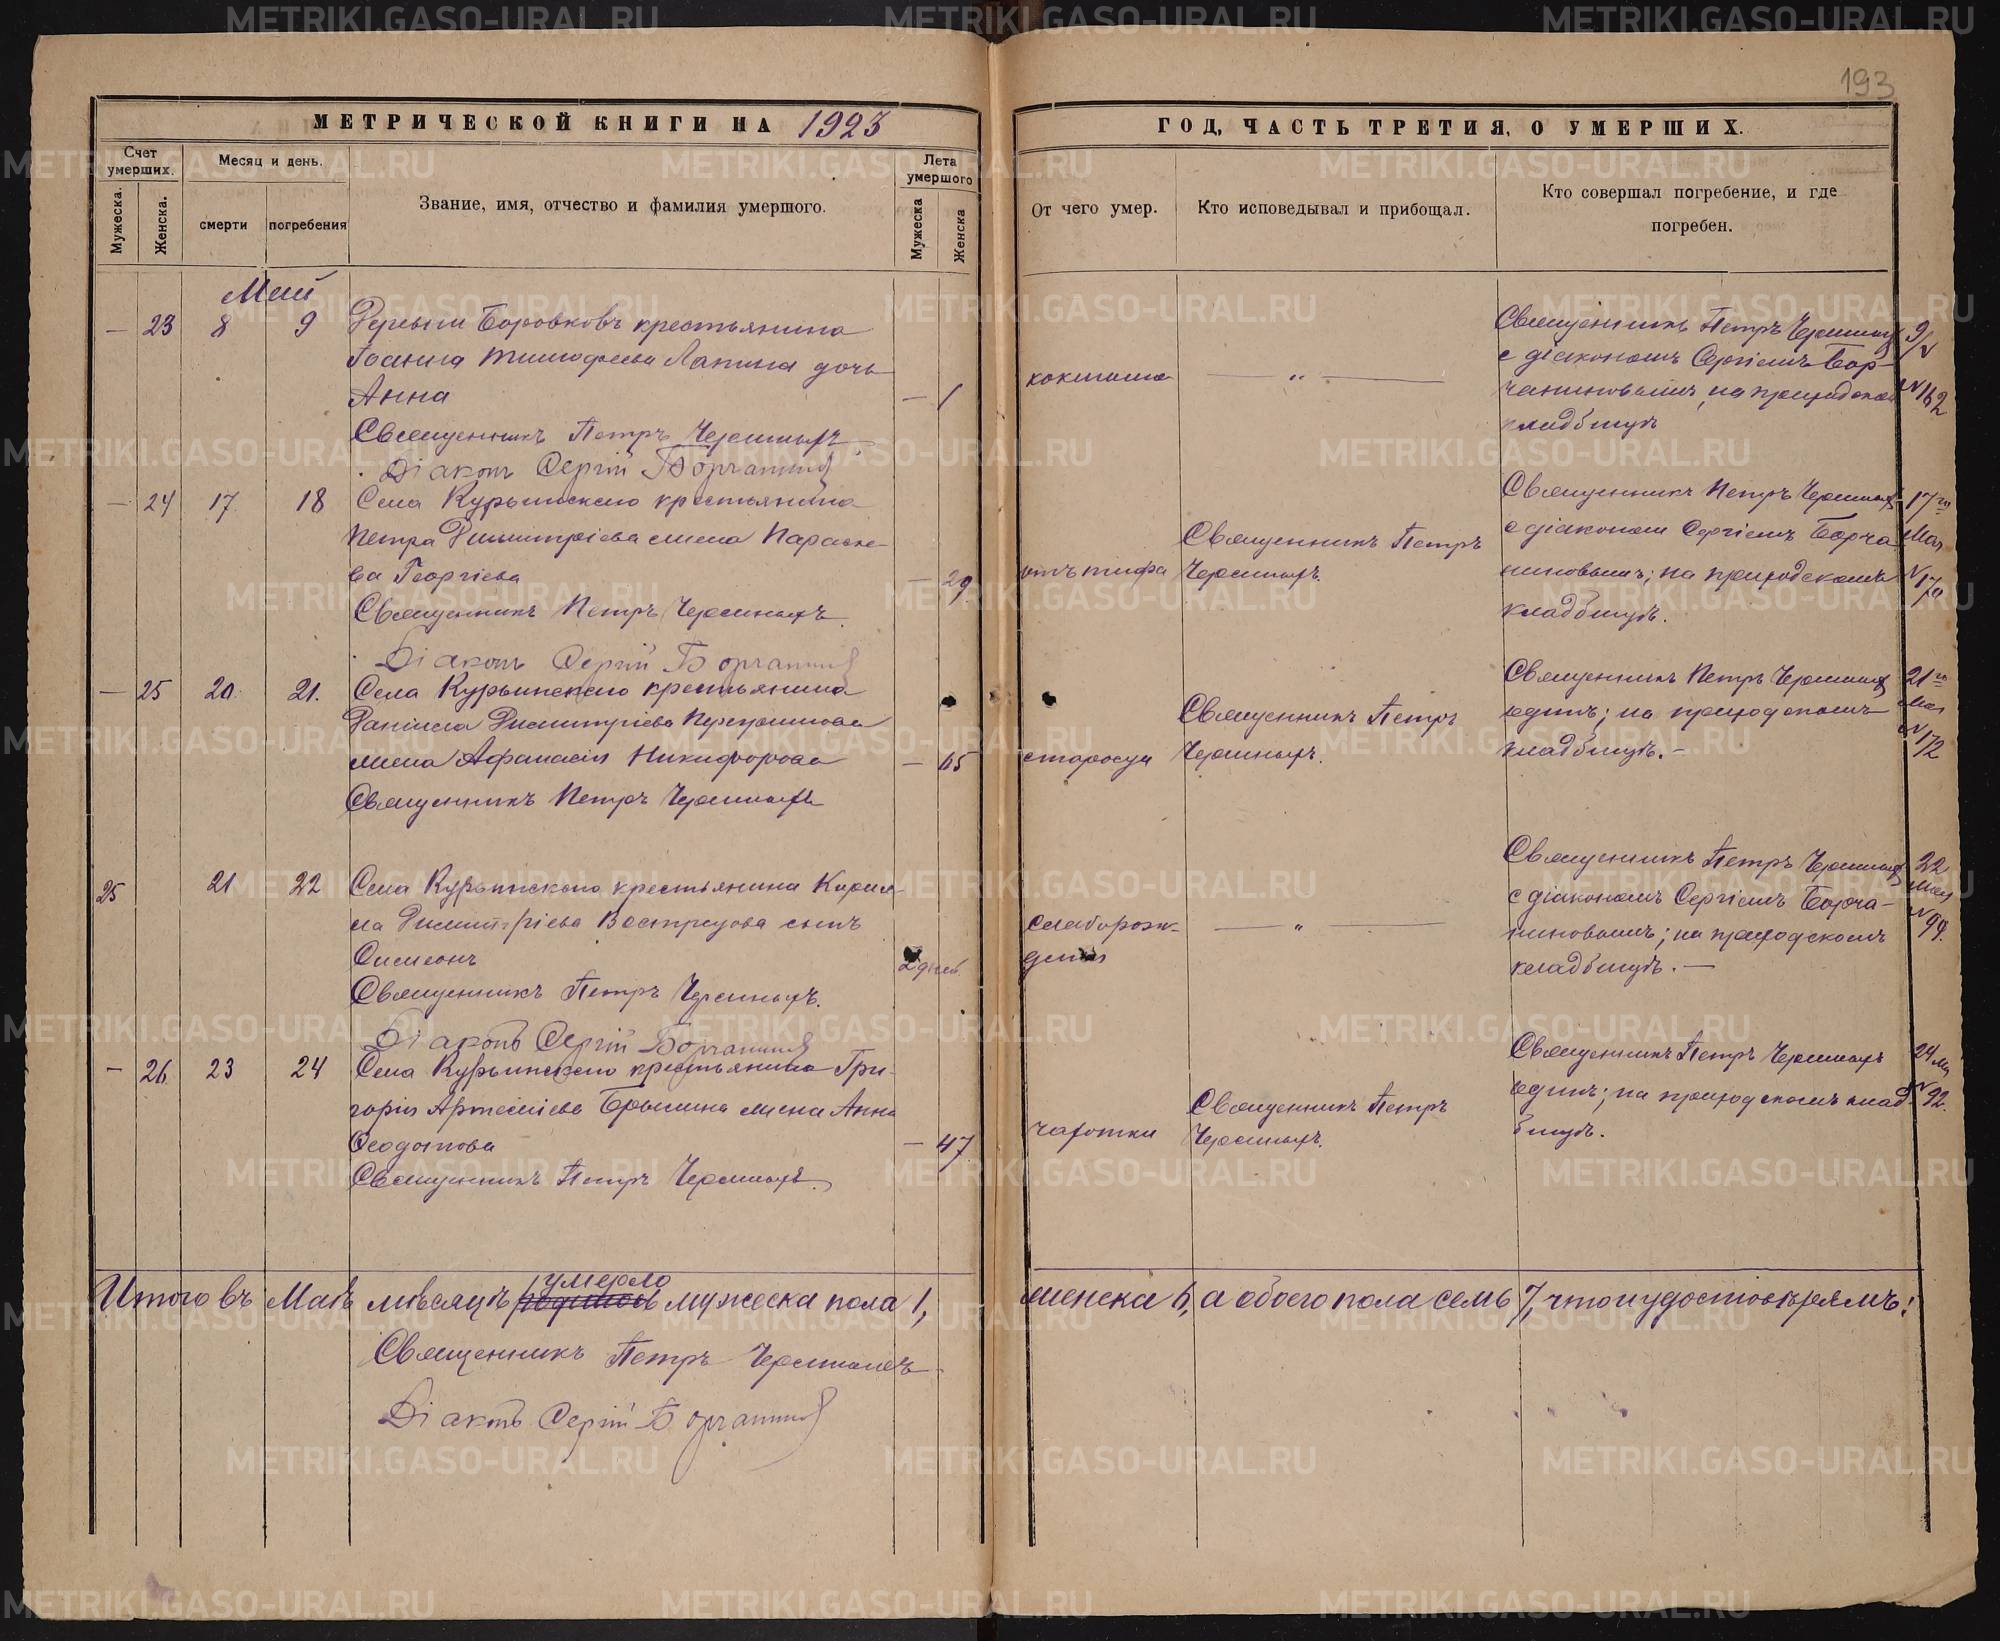 193
МЕТРИЧЕСКОЙ КНИГИ НА 1923
ГОД, ЧАСТЬ ТРЕТИЯ, О УМЕРШИХ.
Счет умерших.
Мужеска.
Женска.
Месяц и день.
смерти
погребения
Звание, имя, отчество и фамилия умершого.
Лета умершого
Мужеска
Женска
От чего умер.
Кто исповедывал и прибощал.
Кто совершал погребение, и где
погребен.
Май
— 23 8 9
Деревни Боровковъ крестьянина
Іоанна Тимофеева Лапина дочь
Анна
— 1
коклюша
— „ —
Священникъ Петръ Черемныхъ
с діакономъ Сергіемъ Бор-
чаниновымъ, на приходскомъ
кладбищѣ
9/V
N 162
Священникъ Петръ Черемныхъ
Діаконъ Сергій Борчанинов
— 24 17 18
Села Курьинского крестьянина
Петра Димитріева жена Параске-
ва Георгіева
— 29
отъ тифа
Священникъ Петръ
Черемныхъ.
Священникъ Петръ Черемныхъ
с діаконом Сергіемъ Борча
ниновымъ; на приходскомъ
кладбищѣ.
17го
Мая
N 170
Священникъ Петръ Черемныхъ.
Діаконъ Сергій Борчанинов
— 25 20 21.
Села Курьинского крестьянина
Даніила Димитріева
жена Афанасія Никифорова
— 65
старости
Священникъ Петръ
Черемныхъ.
Священникъ Петръ Черемныхъ
один; на приходскомъ
кладбищѣ. —
21го
Мая
N 172
Священникъ Петръ Черемныхъ
25 21 22
Села Курьинского крестьянина Кирил-
ла Димитріева Вострецова сынъ
Симеонъ
2 дней.
слаборож-
денія
— „ —
Священникъ Петръ Черемныхъ
с діакономъ Сергіемъ Борча-
ниновымъ; на приходскомъ
кладбищѣ. —
22
Мая
N 99.
Священникъ Петръ Черемныхъ.
Діаконъ Сергій Борчанинов
— 26 23 24
Села Курьинского крестьянина Гри-
горія Артеміева жена Анна
Феодотова
— 47
чахотки
Священникъ Петръ
Черемныхъ.
Священникъ Петръ Черемныхъ
один; на приходскомъ клад-
бищѣ.
24 м
N 92.
Священникъ Петръ Черемныхъ.
Итого въ Маѣ мѣсяцѣ умерло мужеска пола 1, женска 6, а обоего пола семь 7, что и удостовѣряемъ:
Священникъ Петръ Черемныхъ
Діаконъ Сергій Борчанинов
METRIKI.GASO-URAL.RU